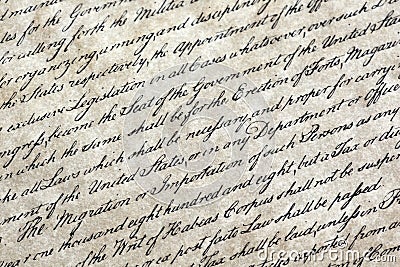 maining
des for the Governm
for calling forth the Militia
for organizing, arming, and disciplining
the States respectively, the Appointment of the Off
exclusive Legislation in all Cases whatsoever, over such D
ongress, become the Seat of the Government of the United
in which the Same shall be, for the Erection of Forts, Magaz
ke all Laws which shall be necessary and proper for carry
ment of the United States, or in any Department or Office
The Migration or Importation of such Persons as any
ear one thousand eight hundred and eight, but a Tax or du
of the Writ of Habeas Corpus shall not be suspen
or ex post facto Law shall be passed.
Tax shall be laid, unless in